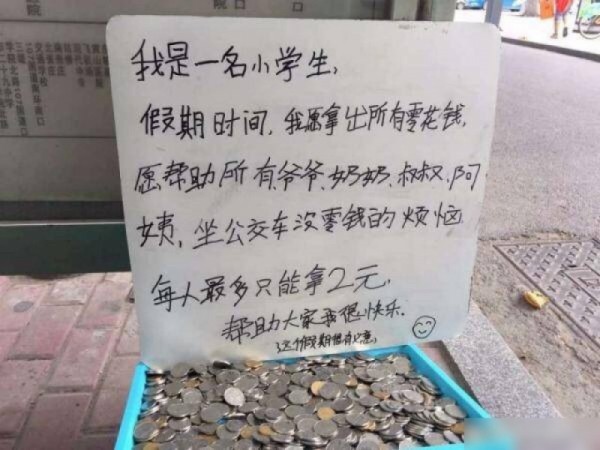 我是一名小学生,
假期时间,我愿拿出所有零花钱,
愿帮助所有爷爷、奶奶、叔叔、阿
姨,坐公交车没零钱的烦恼
每人最多只能拿2元,
帮助大家我很快乐.
这个假期很有意